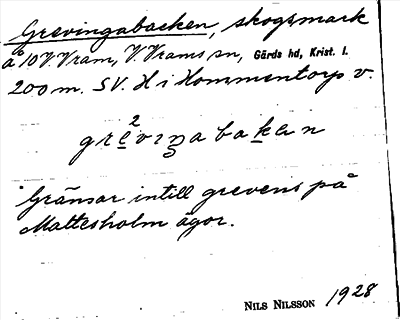 Grevingabacken, skogsmark
å 10 V. Vram, V. Vrams sn, Gärds hd, Krist. l.
200 m. SV. H i Hommentorps v.
grè²viŋabakan
Gränsar intill grevens på
Mattesholm ägor.
NILS NILSSON 1928